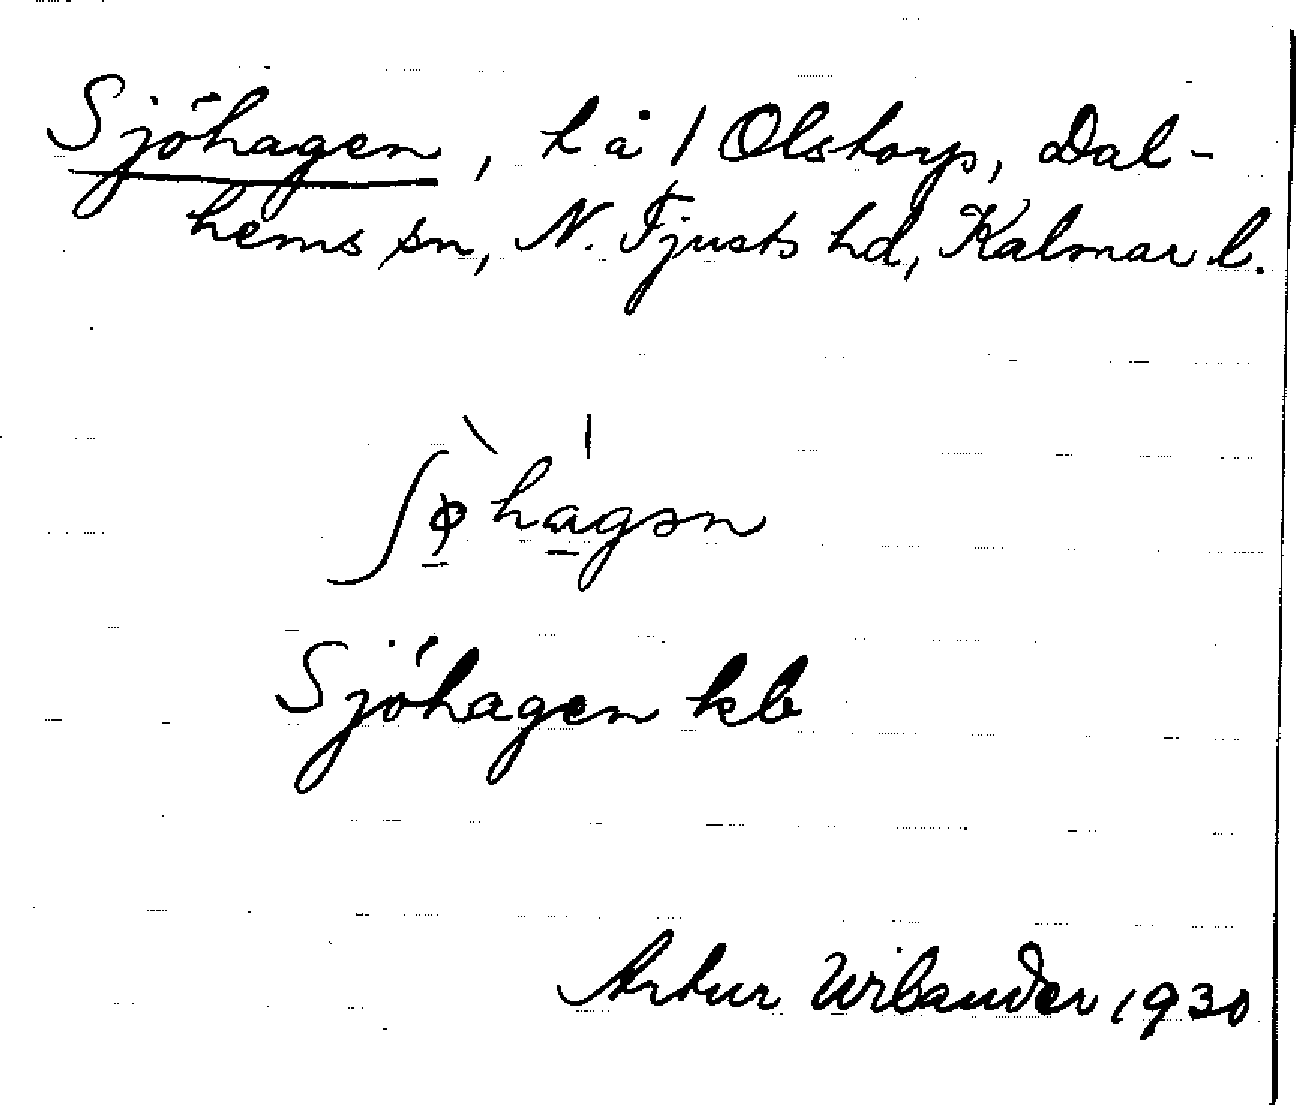 Sjöhagen, t å 1 Olstorp, Dal-
hems sn, N. Tjusts hd, Kalmar l.
ʃø̱ hа̱gən
Sjöhagen kb
Artur Wilander 1930